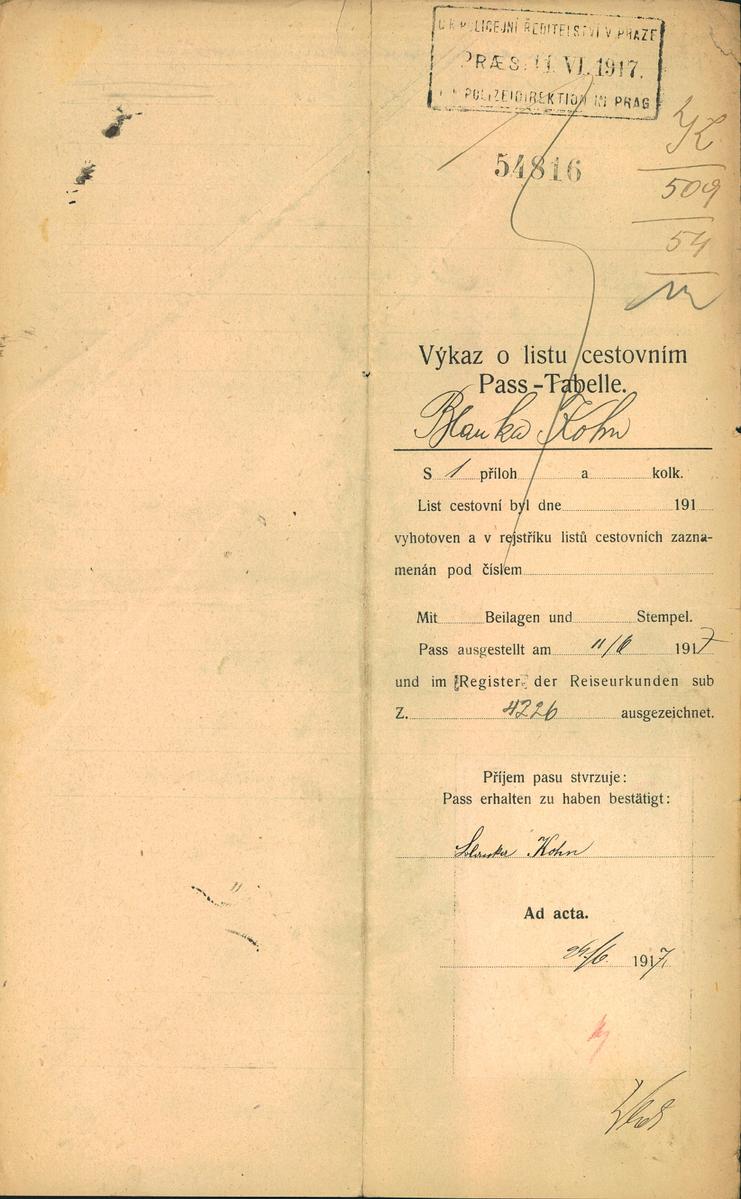 C.K. POLICEJNÍ ŘEDITELSTVÍ V PRAZE
PRÆS. 11. VI. 1917.
K.K. POLIZEIDIREKTION IN PRAG
54816
K
509
54
Výkaz o listu cestovním
Pass-Tabelle.
Blanka Kohn
S 1 příloh a kolk.
List cestovní byl dne 191
vyhotoven a v rejstříku listů cestovních zazna-
menán pod číslem
Mit Beilagen und Stempel.
Pass ausgestellt am 11/6 1917
und im Register der Reiseurkunden sub
Z. 4226 ausgezeichnet.
Příjem pasu stvrzuje:
Pass erhalten zu haben bestätigt:
Blanka Kohn
Ad acta.
1917,